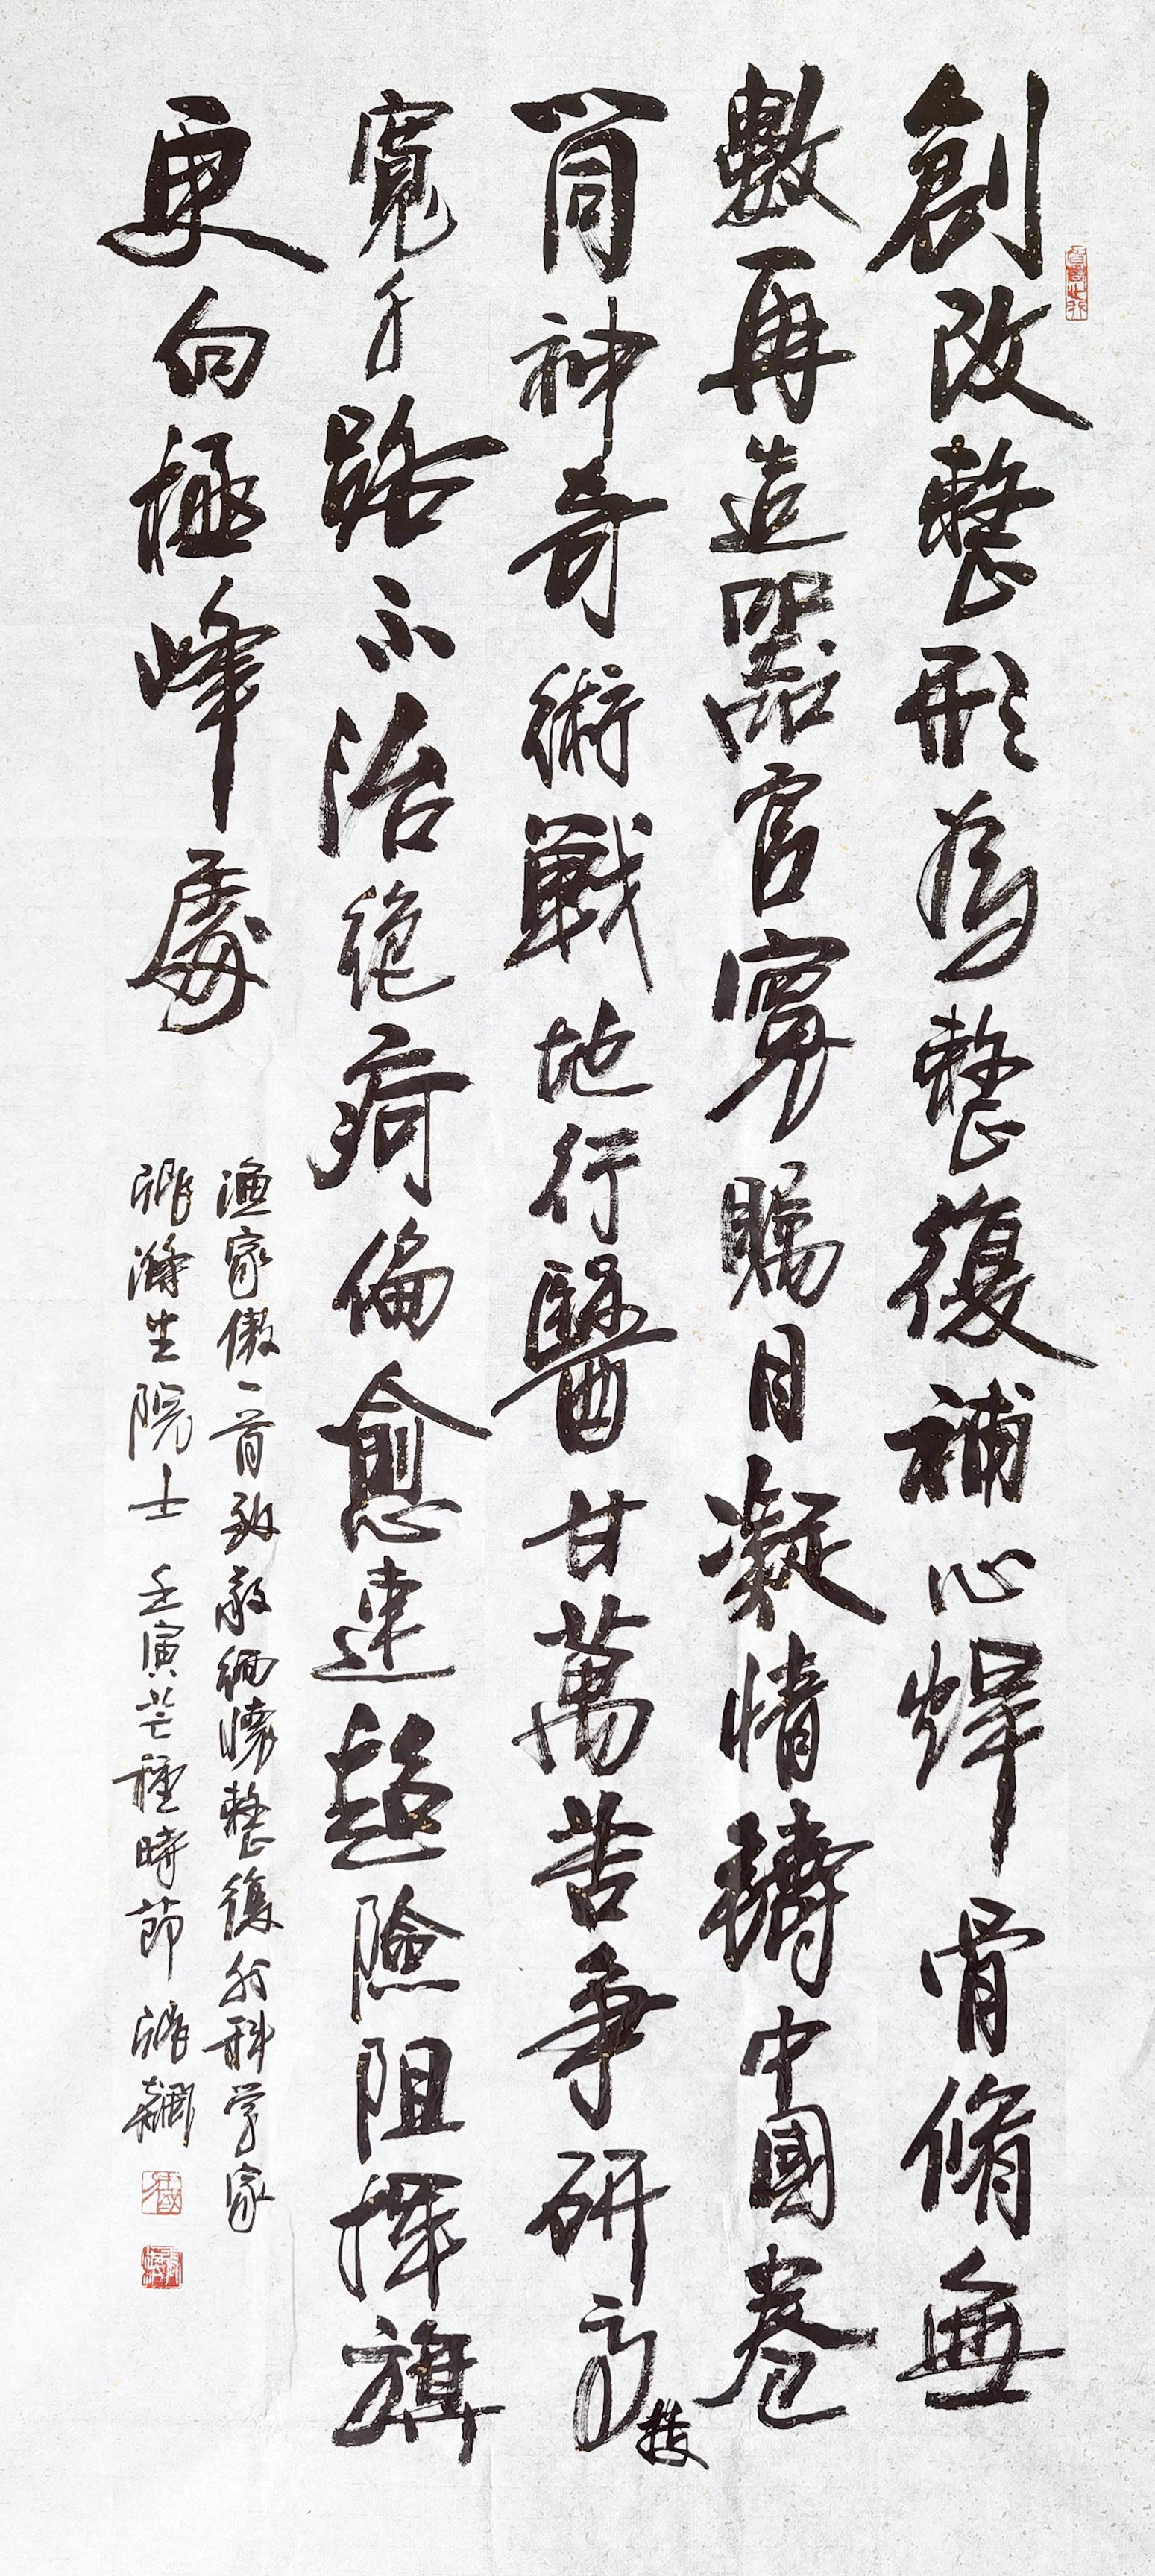 創改整形為整復補心焊骨脩無
數再造器官寧賜目凝情鑄中國卷
首同神奇術戰地行醫甘萬苦爭研高技
寬千路不治絕疴偏愈速超險阻揮旗
更向極峰處
漁家傲一首致敬緬懷整復外科學家
張滌生院士 壬寅芒種時節 張